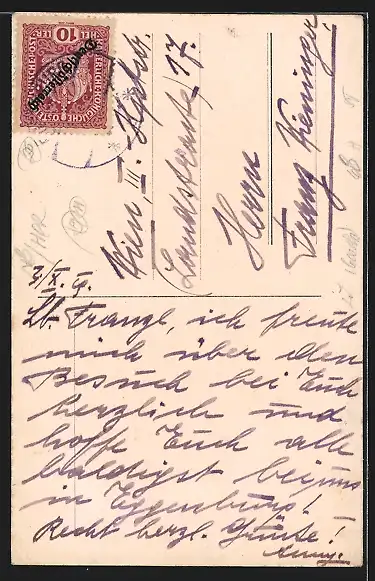 Herrn
Franz Kieninger
Wien, III. Hptstr.
Landstrasse 17.
10
HELLER
Deutschösterreich
3/X. 19.
Lb. Franzl, ich freute
mich über den
Besuch bei Euch
herzlich und
hoffe Euch alle
baldigst bei uns
in Eggenburg!
Recht herzl. Grüße!